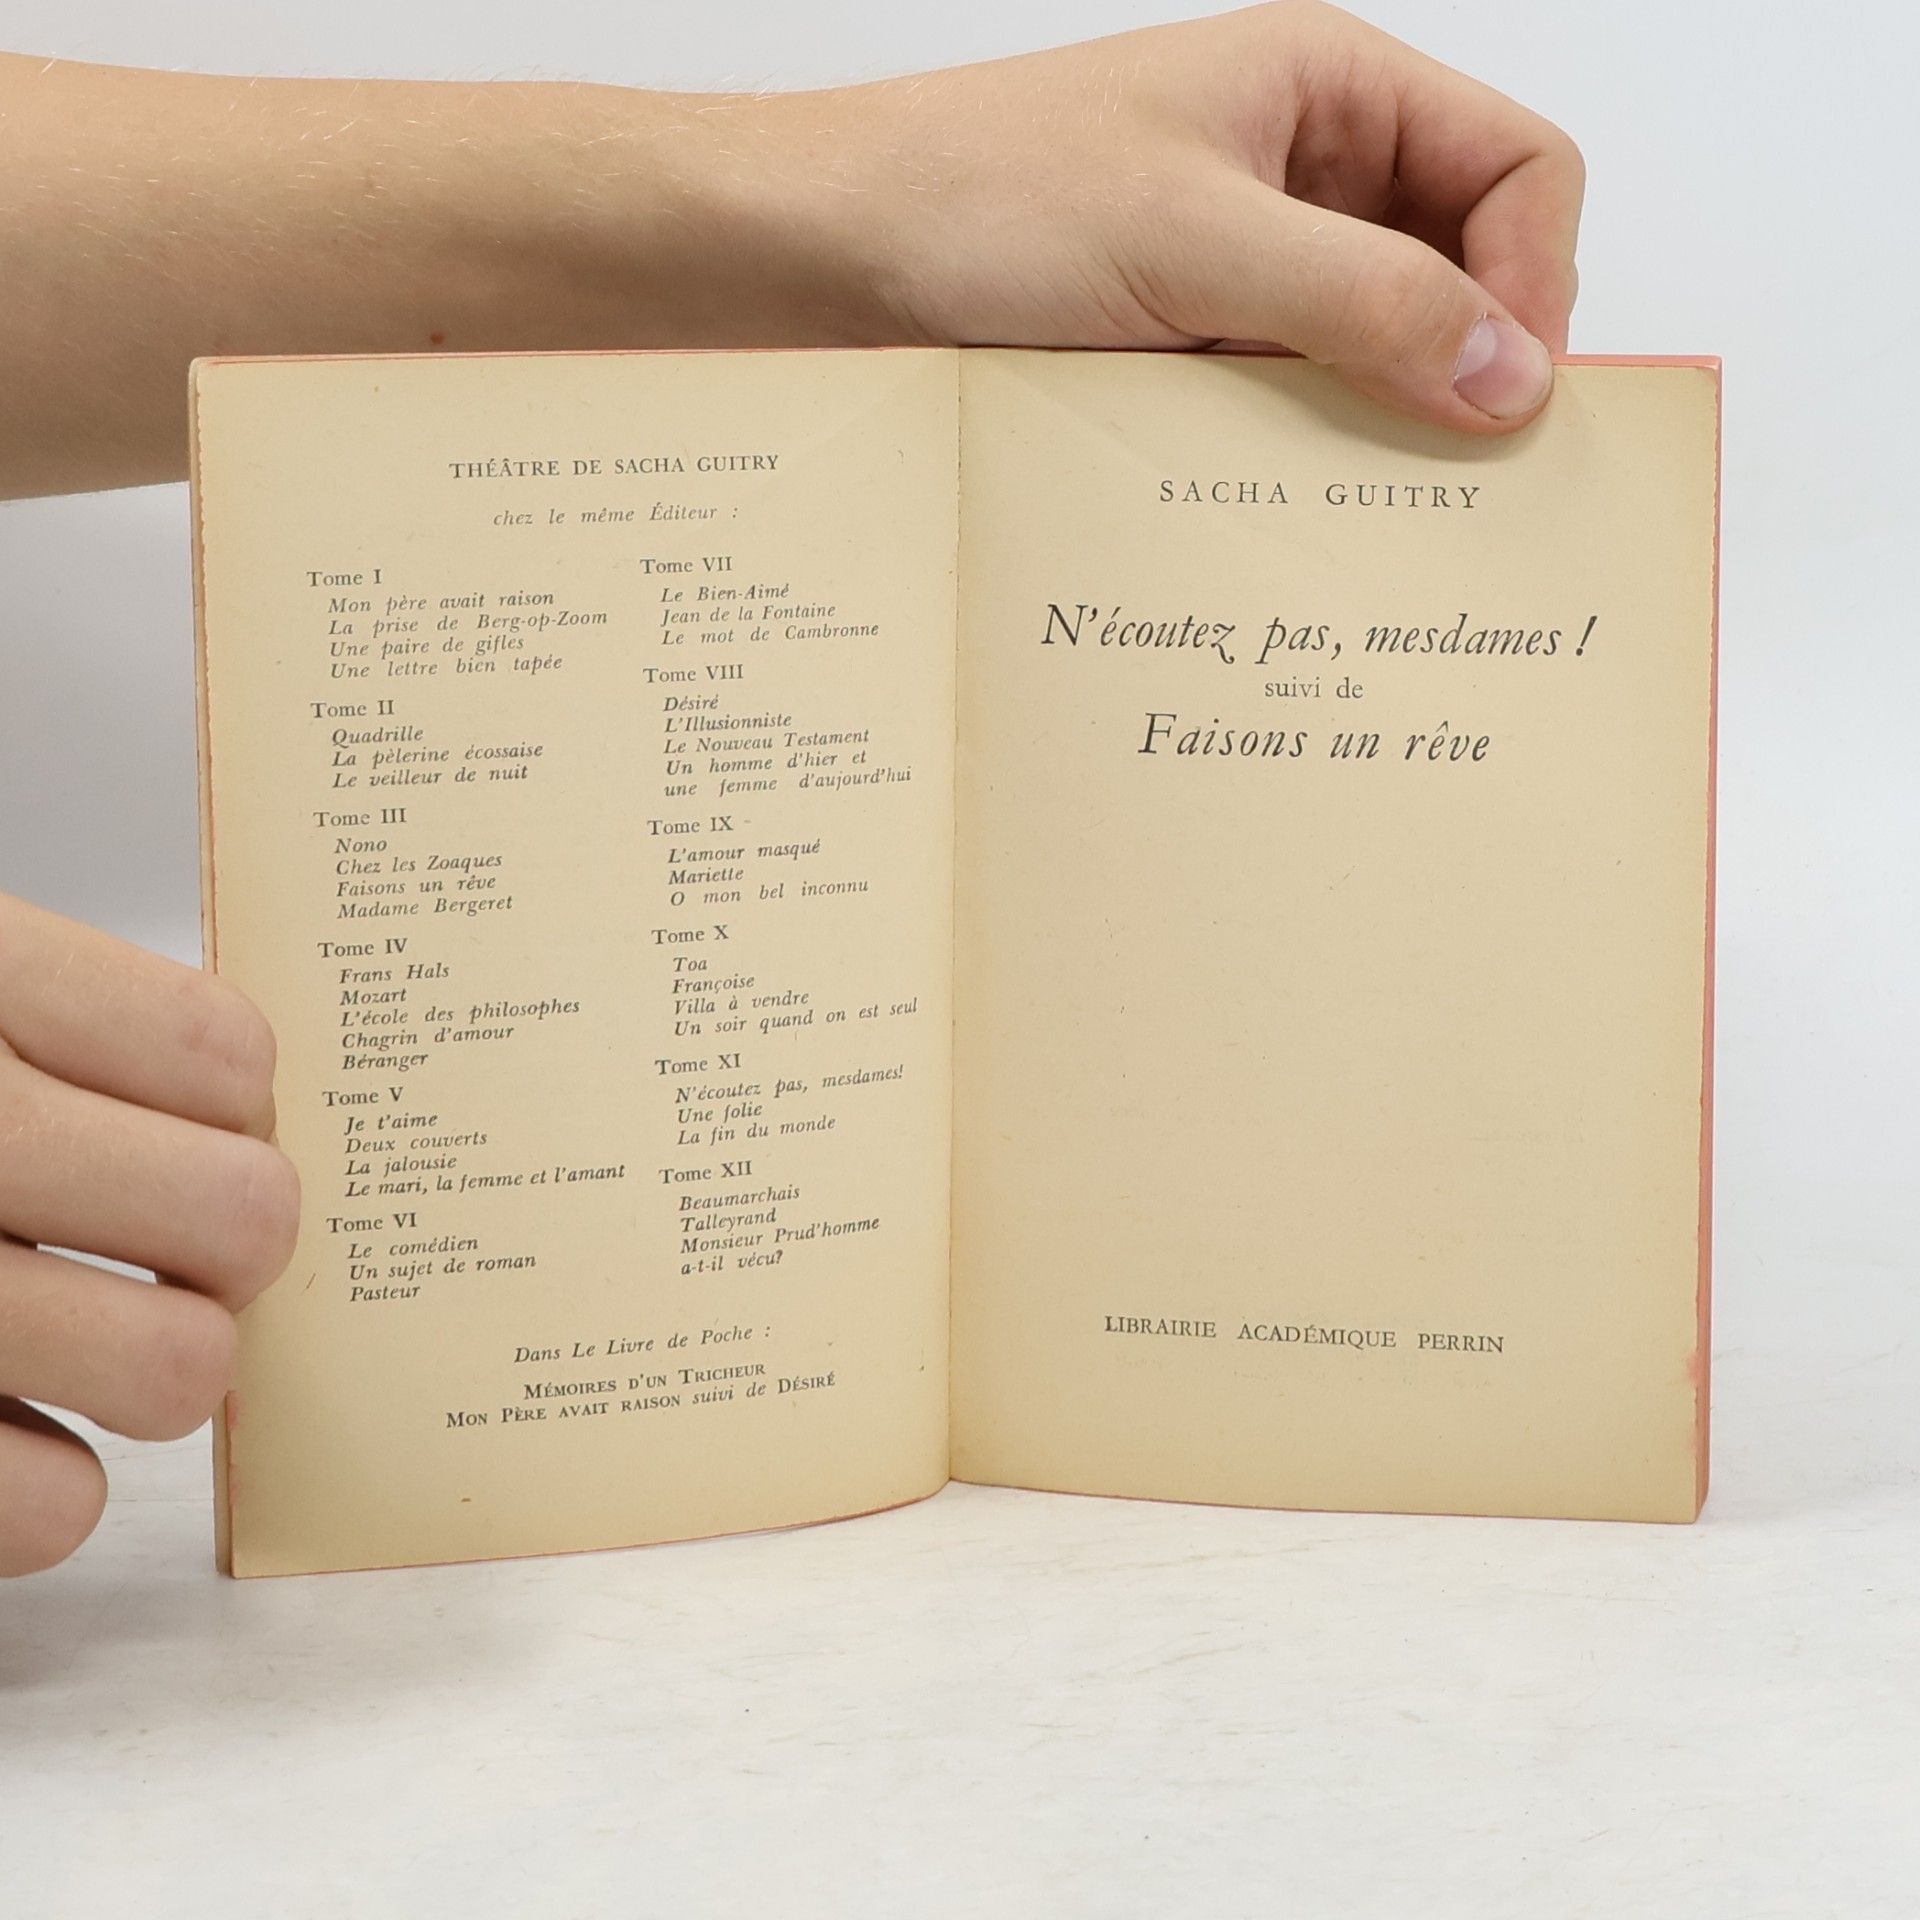 THÉÂTRE DE SACHA GUITRY
chez le même Éditeur :
Tome I
Mon père avait raison
La prise de Berg-op-Zoom
Une paire de gifles
Une lettre bien tapée
Tome II
Quadrille
La pèlerine écossaise
Le veilleur de nuit
Tome III
Nono
Chez les Zoaques
Faisons un rêve
Madame Bergeret
Tome IV
Frans Hals
Mozart
L'école des philosophes
Chagrin d'amour
Béranger
Tome V
Je t'aime
Deux couverts
La jalousie
Le mari, la femme et l'amant
Tome VI
Le comédien
Un sujet de roman
Pasteur
Tome VII
Le Bien-Aimé
Jean de la Fontaine
Le mot de Cambronne
Tome VIII
Désiré
L'Illusionniste
Le Nouveau Testament
Un homme d'hier et
une femme d'aujourd'hui
Tome IX
L'amour masqué
Mariette
O mon bel inconnu
Tome X
Toa
Françoise
Villa à vendre
Un soir quand on est seul
Tome XI
N'écoutez pas, mesdames!
Une folie
La fin du monde
Tome XII
Beaumarchais
Talleyrand
Monsieur Prud'homme
a-t-il vécu?
Dans Le Livre de Poche :
MÉMOIRES D'UN TRICHEUR
MON PÈRE AVAIT RAISON suivi de DÉSIRÉ
SACHA GUITRY
N'écoutez pas, mesdames !
suivi de
Faisons un rêve
LIBRAIRIE ACADÉMIQUE PERRIN